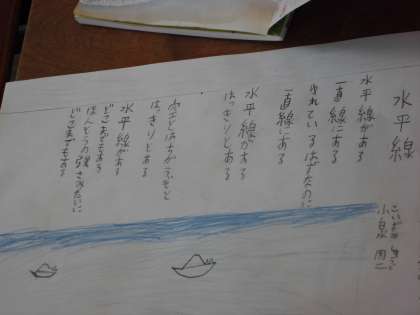 水平線
小泉周二
こいずみ しゅうじ
水平線がある
一直線にある
ゆれているはずなのに
一直線にある
水平線がある
はっきりとある
空とはちがうぞと
はっきりとある
水平線がある
どこまでもある
ほんとうの強さみたいに
どこまでもある